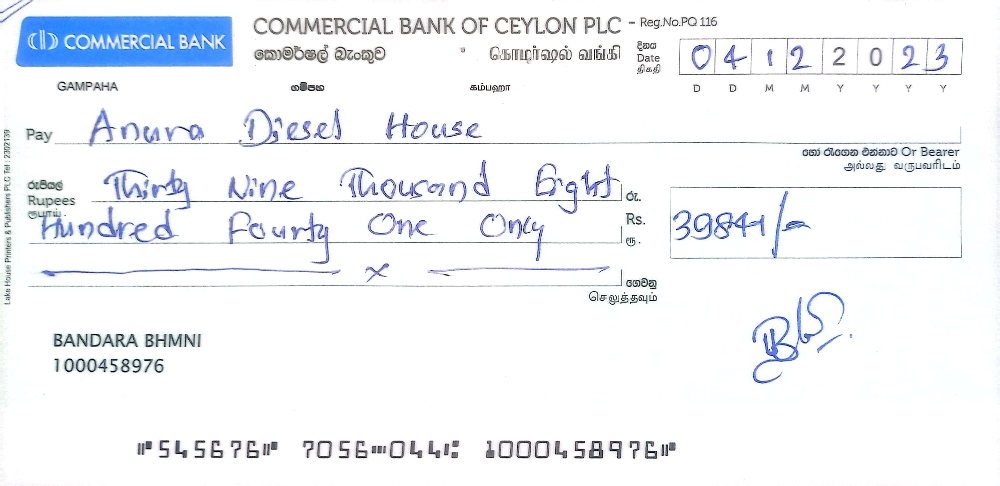 COMMERCIAL BANK
COMMERCIAL BANK OF CEYLON PLC - Reg.No.PQ 116
කොමර්ෂල් බැංකුව கொமர்ஷல் வங்கி
දිනය
Date
திகதி
04 12 2023
D D M M Y Y Y Y
GAMPAHA ගම්පහ கம்பஹா
Pay Anura Diesel House
හෝ රැගෙන එන්නාට Or Bearer
அல்லது வருபவரிடம்
රුපියල්
Rupees
ரூபாய்
Thirty Nine Thousand Eight
Hundred Fourty One Only
රු.
Rs.
ரூ.
39841/-
x
ගෙවනු
செலுத்தவும்
Lake House Printers & Publishers PLC Tel : 2302139
BANDARA BHMNI
1000458976
⑈545676⑈ 7056⑉044⑆ 1000458976⑈